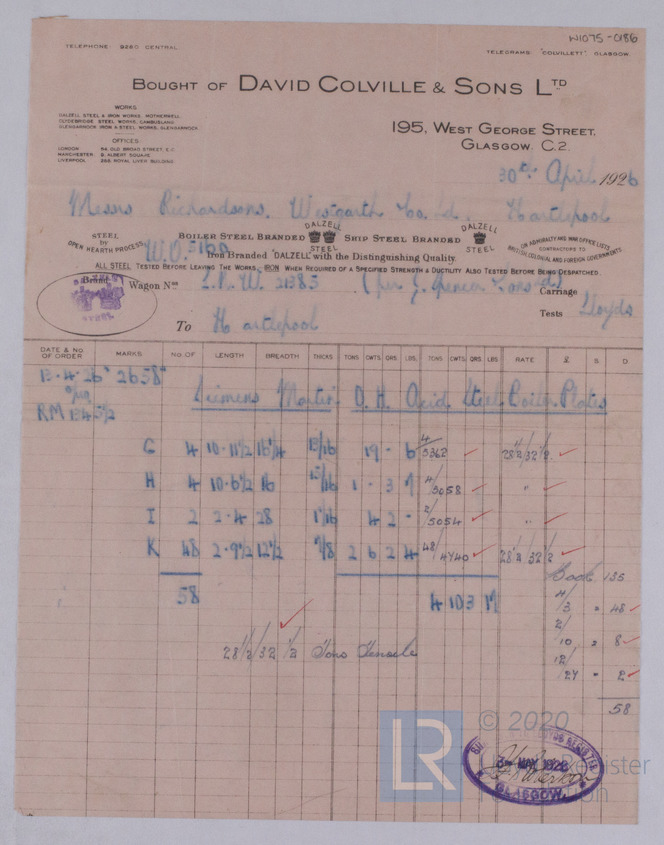 W1075-0186
TELEPHONE 9280 CENTRAL
TELEGRAMS "COLVILLETT" GLASGOW.
BOUGHT OF DAVID COLVILLE & SONS LTD
WORKS
DALZELL STEEL & IRON WORKS, MOTHERWELL.
CLYDEBRIDGE STEEL WORKS, CAMBUSLANG.
GLENGARNOCK IRON & STEEL WORKS, GLENGARNOCK.
OFFICES
LONDON 94 OLD BROAD STREET, E.C.
MANCHESTER 8, ALBERT SQUARE
LIVERPOOL ROYAL LIVER BUILDING
195, WEST GEORGE STREET,
GLASGOW. C.2.
30th April 1926
Messrs Richardsons, Westgarth & Co. Ld. Hartlepool
STEEL by OPEN HEARTH PROCESS
BOILER STEEL BRANDED DALZELL STEEL SHIP STEEL BRANDED DALZELL STEEL
ON ADMIRALTY AND WAR OFFICE LISTS
CONTRACTORS TO
BRITISH, COLONIAL AND FOREIGN GOVERNMENTS
W.O.
Iron Branded 'DALZELL' with the Distinguishing Quality.
ALL STEEL TESTED BEFORE LEAVING THE WORKS. IRON WHEN REQUIRED OF A SPECIFIED STRENGTH & DUCTILITY ALSO TESTED BEFORE BEING DESPATCHED.
Brand
STEEL
Wagon Nos L.N.W. 21383 (per J. Spencer & Sons Ld) Carriage
Tests Lloyds
To Hartlepool
DATE & NO OF ORDER MARKS NO. OF LENGTH BREADTH THICKS TONS CWTS. QRS. LBS. TONS CWTS. QRS. LBS RATE £ S D
13.4.26 2658
RM 1345/2
Siemens Martin O.H. Acid Steel Boiler Plates
G 4 10.11½ 16¼ 15/16 19 - 6 4/5362 28½/32½
H 4 10.6½ 16 15/16 1 - 3 7 4/5058 "
I 2 2.4 28 1 1/16 4 2 - 2/5054 "
K 48 2.9½ 12½ 7/8 2 6 2 4 48/4740 28½/32½
58 4 10 3 17
Book 135
4/3 = 48
2/10 = 8
12/127 = 2
58
28½/32½ Tons Tensile
LR
© 2020
Lloyd's Register
Foundation
LLOYDS REGISTER
3rd MAY 1926
GLASGOW.